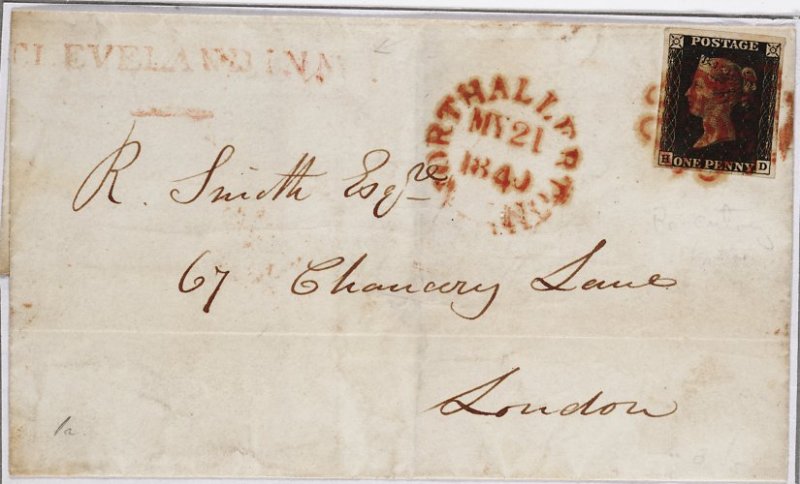 CLEVELAND INN
POSTAGE
H ONE PENNY D
NORTHALLERTON
MY 21
1840
R. Smith Esqre
67 Chancery Lane
London